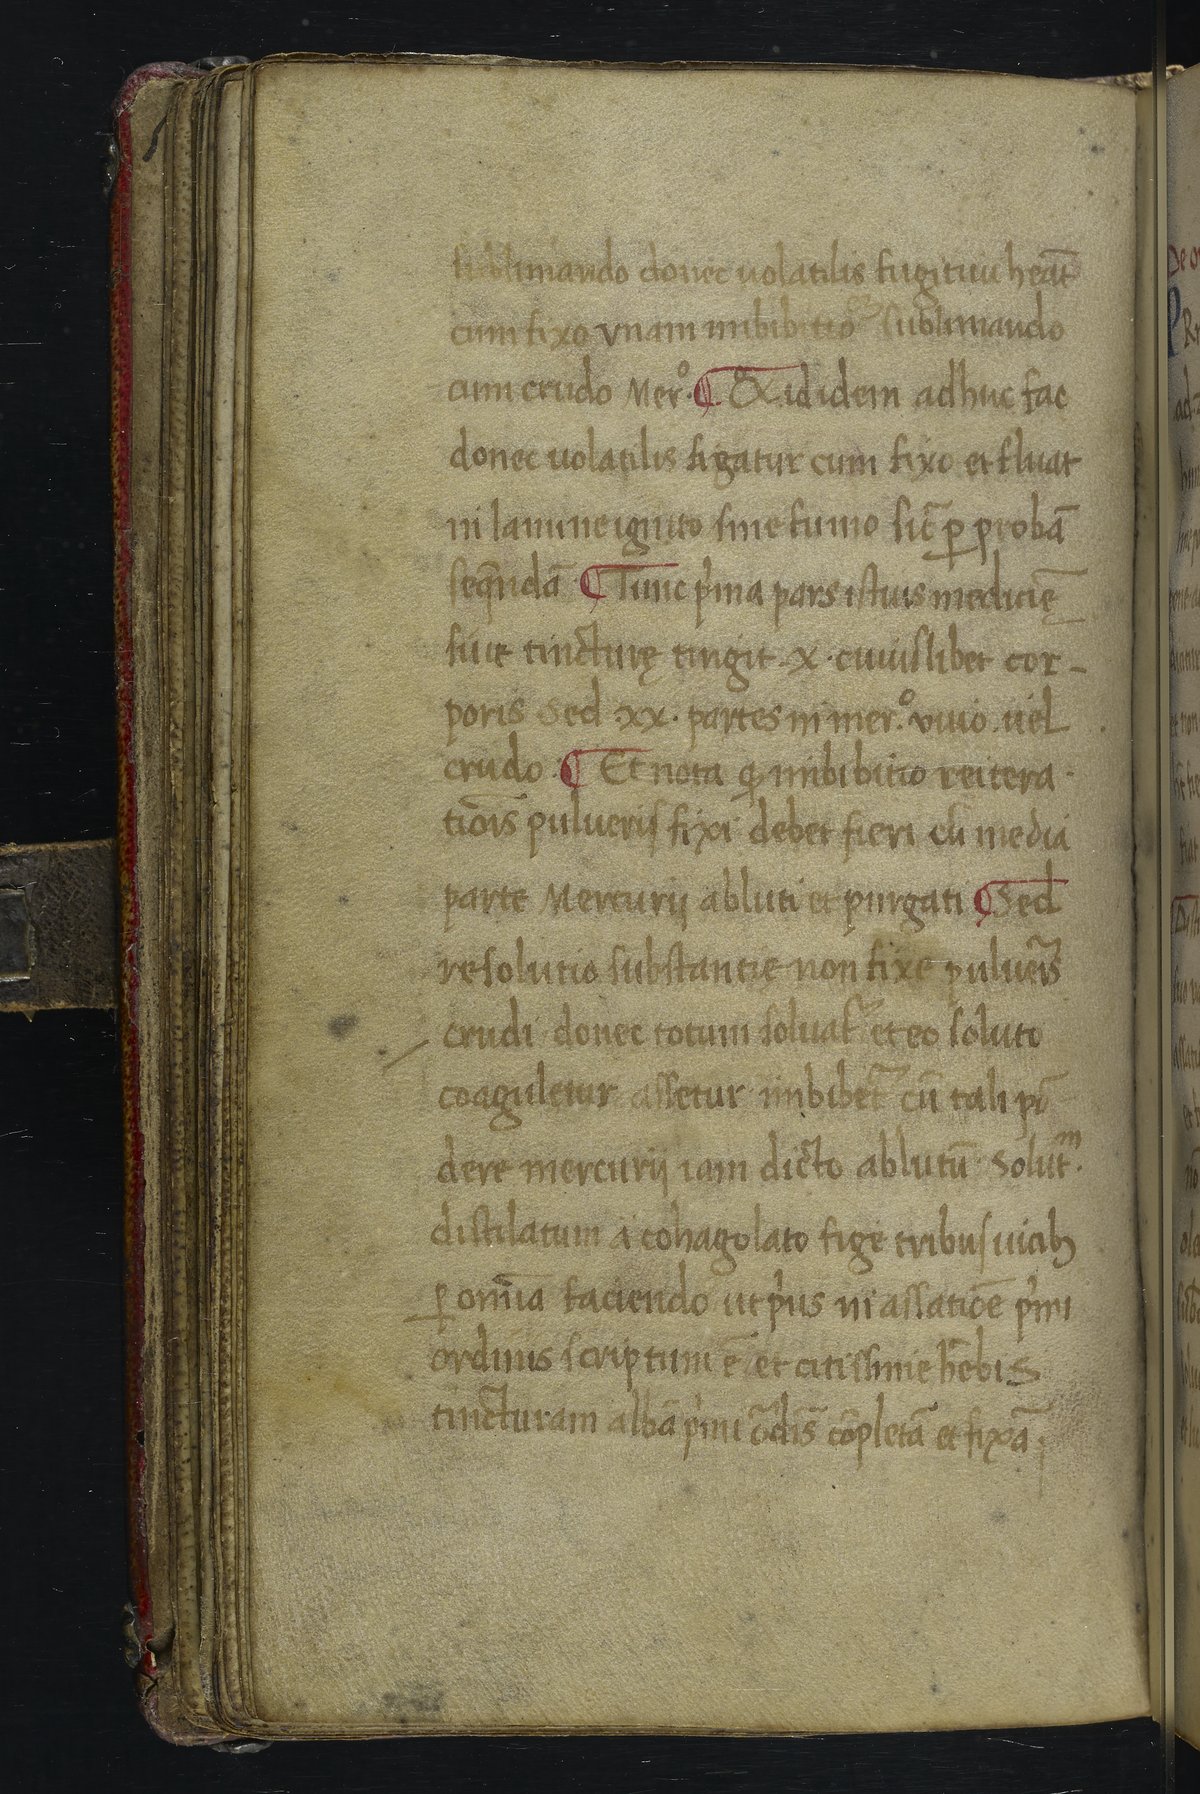 sublimando donec uolatilis fugituu heat̄
cum fixo vnam imbibitio᷑ sublimando
cum crudo Mer.º ¶ id idem adhuc fac
donec uolatilis figatur cum fixo et fluat
in lamine ignito sine fumo sic̄ ꝑ probā
seqn̄dā ¶ Tunc pi̾ma pars istius mediciē
siue tincturę tingit .x. cuiuslibet cor-
poris Sed .xx. partes in mer.º viuo .uel
crudo. ¶ Et nota ꝙ imbibitio reitera
tiōis pulueris fixi debet fieri cū media
parte Mercurij abluti et purgati ¶ Sed
resolutio substantię non fixe pulueīs
crudi donec totum soluat᷑ et eo soluto
coaguletur assetur imbibet᷑ cū tali pō
dere mercurij iam dicto ablutū. Solut.ᵐ
distilatum a cohagolato fige tribus uicibꝫ
ꝑ omīa faciendo ut pi̾us in assatiōe pi̾mi
ordinis scriptum ē et citissime hēbis
tincturam albā pi̾mi oȓdis cōpletā et fixā.